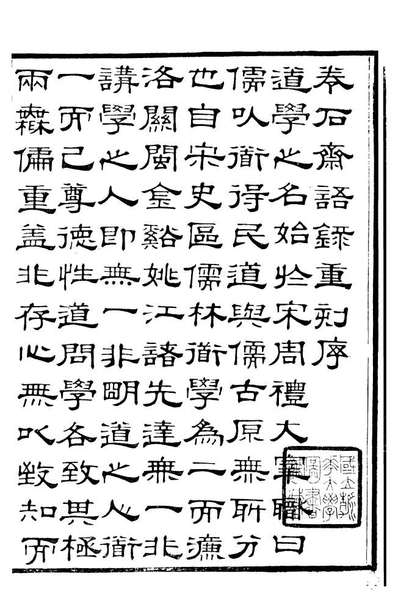 卷石齋語錄重刻序
道學之名始於宋周禮大宰職曰
儒以衜得民道與儒古原無所分
也自宋史區儒林衜學為二而濂
洛關閩金谿姚江諸先達無一非
講學之人即無一非明道之人衜
一而已尊德性道問學各致其極
兩無偏重蓋非存心無以致知而